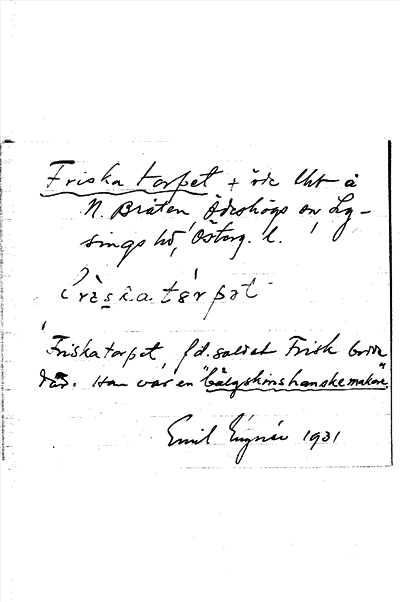 Friska torpet + öde lht å
N. Bråten Ödeshögs sn Ly-
sings hd, Österg. l.
frìs̬ka.tɜ́rpət
Friskatorpet, f.d. soldat Frisk bodde
där. Han var en "bälgskinshanskemakare"
Emil 1931